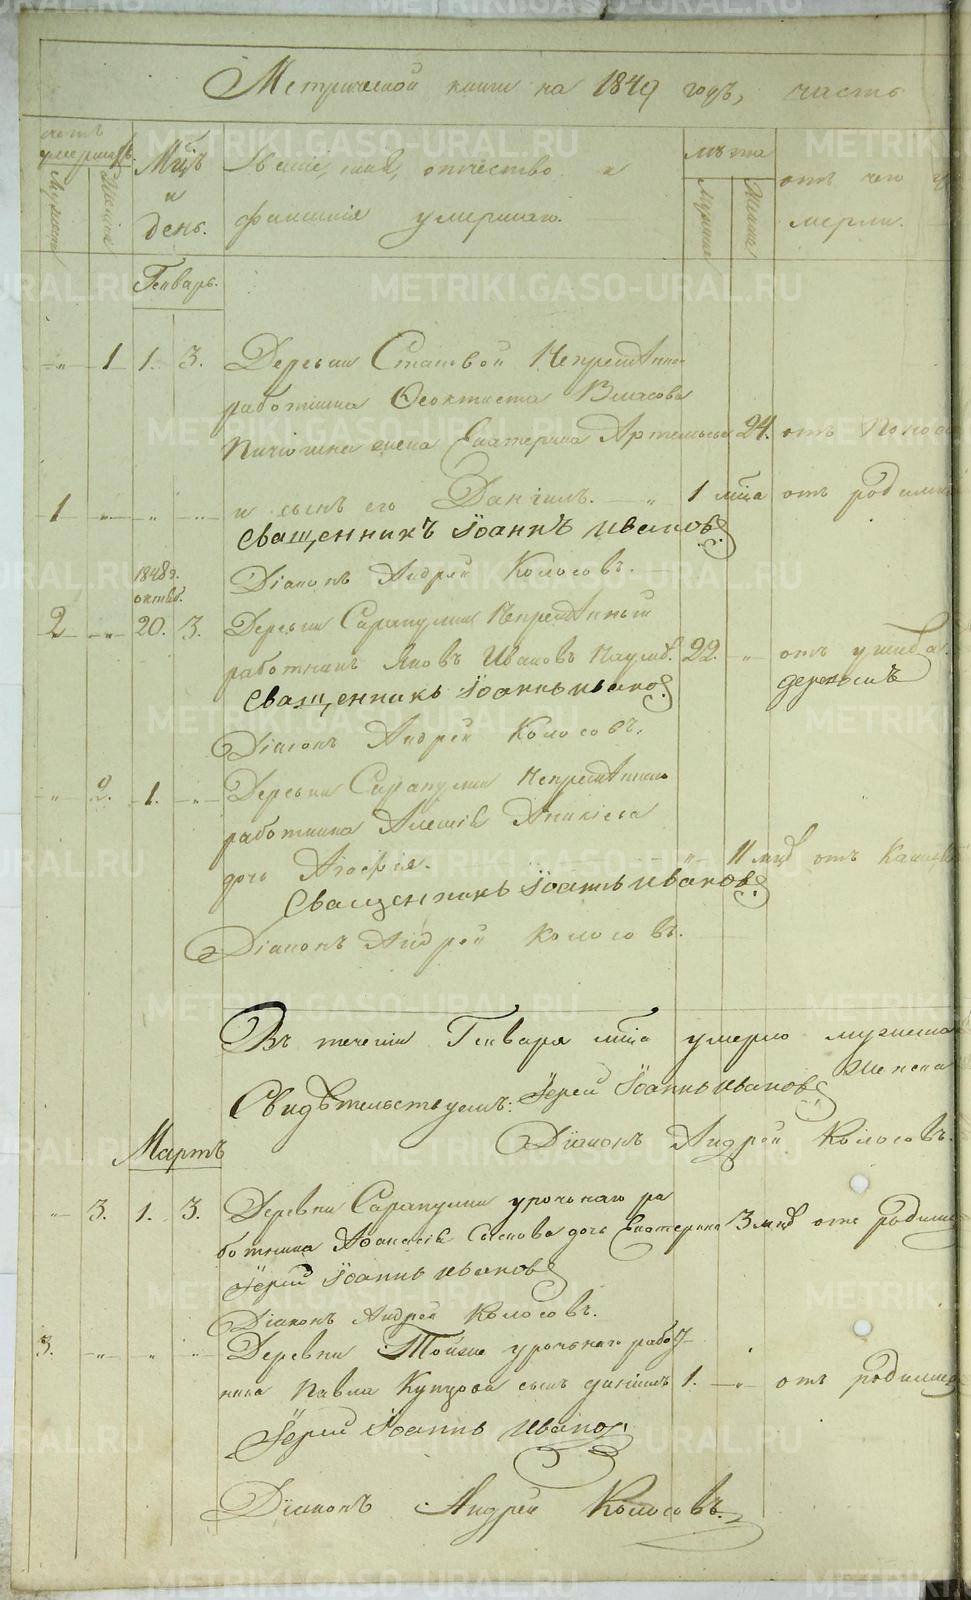 Метрической книги на 1849 годъ, часть
счетъ умершихъ.
Мужеска
Женска
Мѣцъ и день.
Званіе, имя, отчество и
фамилія умершаго.
лѣта
Мужеска
Женска
отъ чего у
мерли.
Генварь.
1 1. 3. Деревни Становой Непремѣнна
работника Ѳеоктиста Власова
жена Екатерина Артемьева 24. отъ
1 и сынъ его Даніилъ. 1 мца отъ родимца
Священникъ Іоаннъ Ивановъ
Діаконъ Андрей Колосовъ.
1848 г.
октяб.
2 20. 3. Деревни Сарапулки Непремѣнный
работникъ Яковъ Ивановъ 22. отъ ушиба
деревомъ
Священникъ Іоаннъ Ивановъ
Діаконъ Андрей Колосовъ.
2. 1. Деревни Сарапулки Непремѣннаго
работника Алексѣя Аникіева
дочь 11 мцв отъ
Священникъ Іоаннъ Ивановъ
Діаконъ Андрей Колосовъ.
Въ теченіи Генваря мца умерло мужеска
женска
Свидѣтельствуемъ: Іерей Іоаннъ Ивановъ
Діаконъ Андрей Колосовъ.
Мартъ
3. 1. 3. Деревни Сарапулки урочнаго ра
ботника дочь Екатерина 3 мцв отъ родимца
Іерей Іоаннъ Ивановъ
Діаконъ Андрей Колосовъ.
3. Деревни урочнаго работ
ника Павла сынъ Даніилъ 1. отъ родимца
Іерей Іоаннъ Ивановъ
Діаконъ Андрей Колосовъ.
METRIKI.GASO-URAL.RU